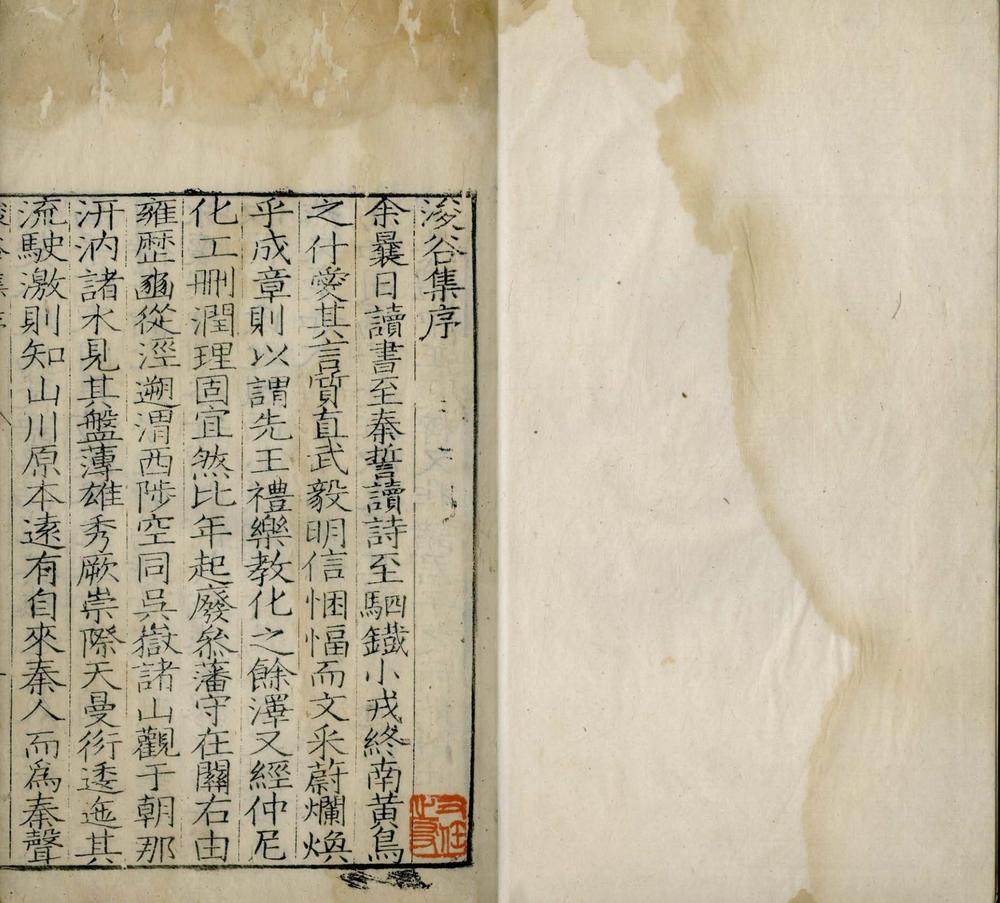 浚谷集序
余曩日讀書至秦誓讀詩至駟鐵小戎終南黃鳥
之什愛其言質直武毅明信悃愊而文采蔚爛煥
乎成章則以謂先王禮樂教化之餘澤又經仲尼
化工刪潤理固宜然比年起廢叅藩守在關右由
雍歷豳從涇遡渭西陟空同吳嶽諸山觀于朝那
汧汭諸水見其盤薄雄秀厥崇際天曼衍逶迤其
流駛激則知山川原本遠有自來秦人而為秦聲